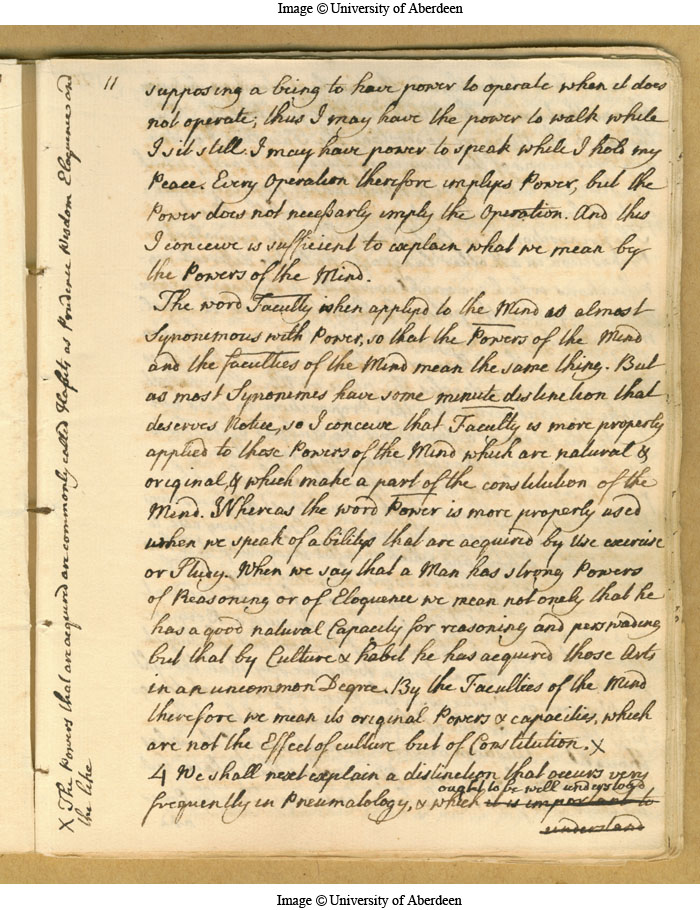 Image © University of Aberdeen
11
supposing a being to have power to operate when it does
not operate; thus I may have the power to walk while
I sit still. I may have power to speak while I hold my
Peace. Every Operation therefore implys Power, but the
Power does not necessarly imply the Operation. And this
I conceive is sufficient to explain what we mean by
the Powers of the Mind.
The word Faculty when applyd to the Mind is almost
Synonimous with Power, so that the Powers of the Mind
and the faculties of the Mind mean the same thing. But
as most Synonimes have some minute distinction that
deserves Notice, so I conceive that Faculty is more properly
applied to those Powers of the Mind which are natural &
original, & which make a part of the constitution of the
Mind. Whereas the word Power is more properly used
when we speak of abilitys that are acquired by Use exercise
or Study. When we say that a Man has strong Powers
of Reasoning or of Eloquence we mean not onely that he
has a good natural Capacity for reasoning and perswading
but that by Culture & habit he has acquired those Arts
in an uncommon Degree. By the Faculties of the Mind
therefore we mean its original Powers & capacities, which
are not the Effect of culture but of Constitution. X
4 We shall next explain a distinction that occurs very
ought to be well understood
frequently in Pneumatology, & which it is important to
understand
X The Powers that are acquird are commonly called Habits as Prudence Wisdom Eloquence and
the like
Image © University of Aberdeen